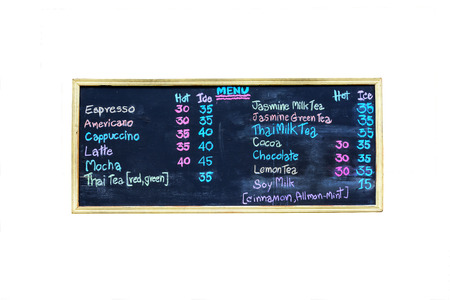 MENU
Hot Ide
Espresso 30 35
Americano 30 35
Cappuccino 35 40
Latte 35 40
Mocha 40 45
Thai Tea [red, green] 35
Hot Ice
Jasmine Milk Tea 35
Jasmine Green Tea 35
Thai Milk Tea 35
Cocoa 30 35
Chocolate 30 35
Lemon Tea 30 35
Soy Milk 15
[cinnamon, Allmon-Mint]